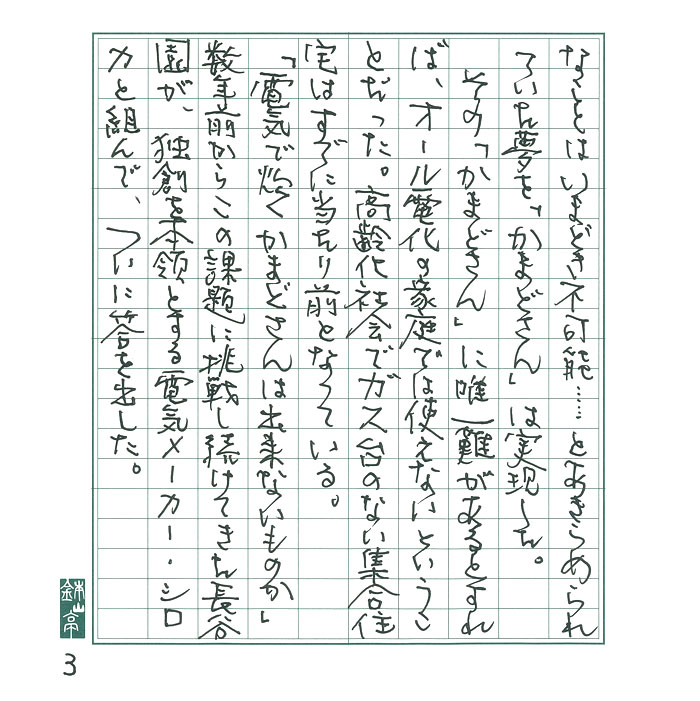 なことはいまどき不可能……とあきらめられ
ていた夢を「かまどさん」は実現した。
その「かまどさん」に唯一難があるとすれ
ば、オール電化の家庭では使えないというこ
とだった。高齢化社会でガス台のない集合住
宅はすでに当たり前となっている。
「電気で炊くかまどさんは出来ないものか」
数年前からこの課題に挑戦し続けてきた長谷
園が、独創を本領とする電気メーカー・シロ
カと組んで、ついに答を出した。
3